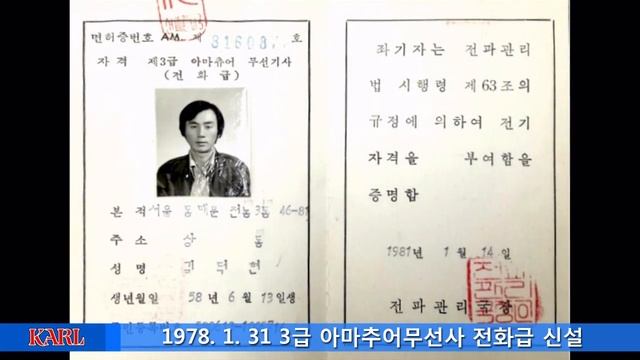 면허증번호 AM 제 호
자격 제3급 아마츄어 무선기사
(전화급)
본적 서울 동대문 전농3동 46-81
주소 상 동
성명 김덕현
생년월일 58년 6월 13일생
좌기자는 전파관리
법 시행령 제63조의
규정에 의하여 전기
자격을 부여함을
증명함
1981년 1월 14일
전파관리국장
KARL
1978. 1. 31 3급 아마추어무선사 전화급 신설